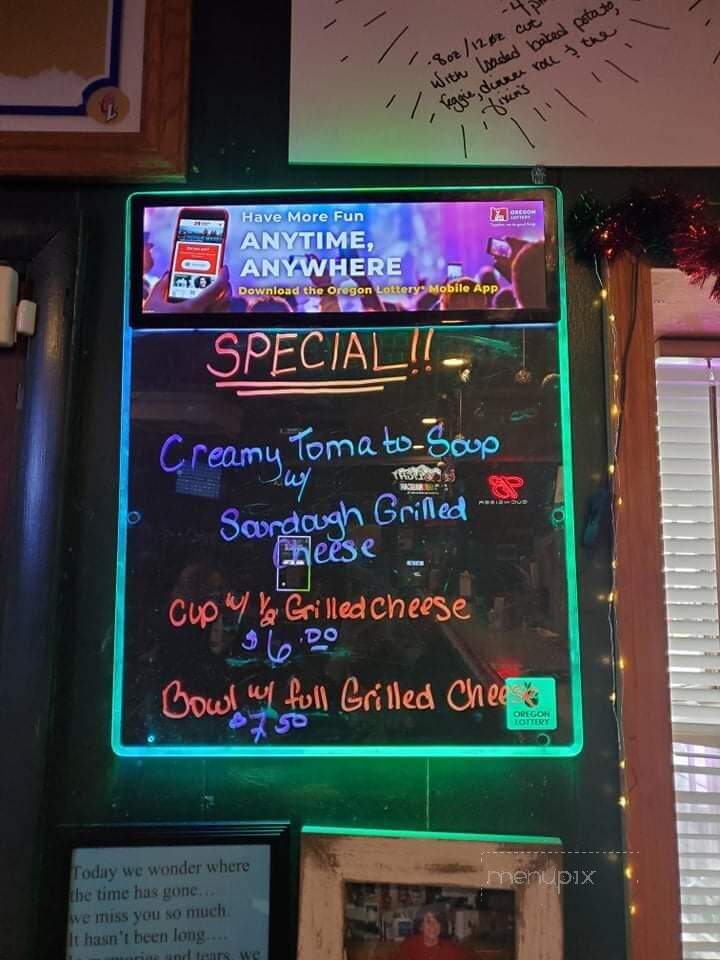 -4 p
-8oz/12oz cut
with loaded baked potato,
veggie, dinner roll & the
fixin's
Have More Fun
ANYTIME,
ANYWHERE
Download the Oregon Lottery® Mobile App
OREGON
LOTTERY
SPECIAL!!
Creamy Tomato Soup
w/
Sourdough Grilled
Cheese
Cup w/ 1/2 Grilled cheese
$6.00
Bowl w/ full Grilled Cheese
$7.50
OREGON
LOTTERY
Today we wonder where
the time has gone…
we miss you so much.
It hasn't been long….
memories and tears, we
menupix